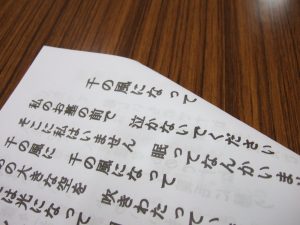 千の風になって
私のお墓の前で 泣かないでください
そこに私はいません 眠ってなんかいま
千の風に 千の風になって
の大きな空を 吹きわたってい
は光になって